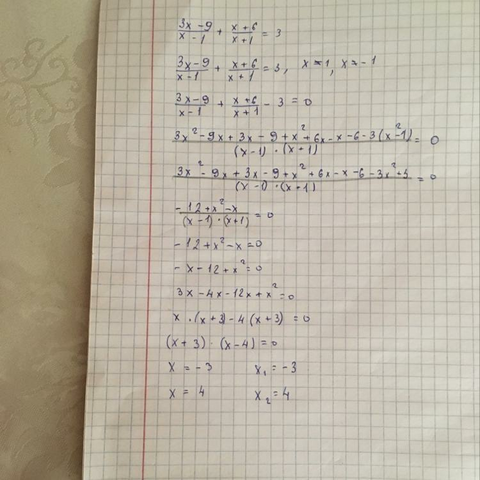 (3x-9)/(x-1) + (x+6)/(x+1) = 3
(3x-9)/(x-1) + (x+6)/(x+1) = 3, x≠1, x≠-1
(3x-9)/(x-1) + (x+6)/(x+1) - 3 = 0
(3x²-9x+3x-9+x²+6x-x-6-3(x²-1))/((x-1)·(x+1)) = 0
(3x²-9x+3x-9+x²+6x-x-6-3x²+3)/((x-1)·(x+1)) = 0
(-12+x²-x)/((x-1)·(x+1)) = 0
-12+x²-x=0
-x-12+x²=0
3x-4x-12x+x²=0
x·(x+3)-4(x+3)=0
(x+3)·(x-4)=0
x=-3 x₁=-3
x=4 x₂=4